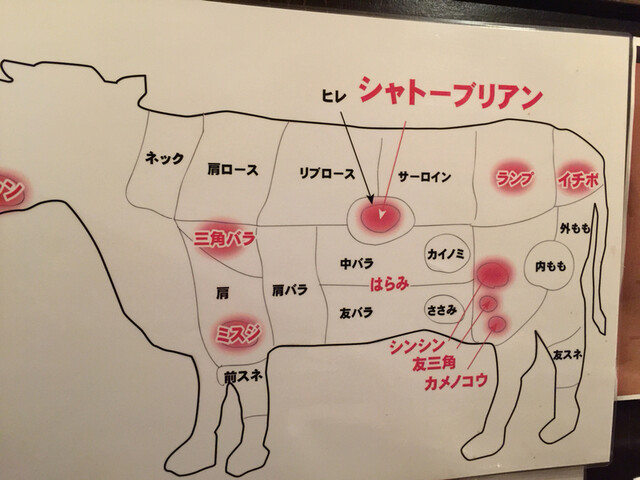 シャトーブリアン
ヒレ
ネック
肩ロース
リブロース
サーロイン
ランプ
イチボ
三角バラ
外もも
中バラ
カイノミ
内もも
はらみ
肩
肩バラ
友バラ
ささみ
ミスジ
シンシン
友三角
カメノコウ
友スネ
前スネ